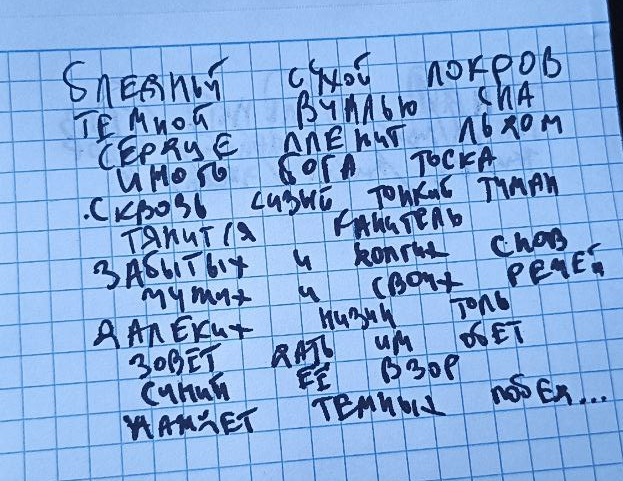 БЛЕДНЫЙ СУХОЙ ПОКРОВ
ТЕМНОЙ ВУАЛЬЮ СНА
СЕРДЦЕ ПЛЕНИТ ЛЬДОМ
ИНОГО БОГА ТОСКА
СКВОЗЬ СИЗЫЙ ТОНКИЙ ТУМАН
ТЯНИТСЯ КАНИТЕЛЬ
ЗАБЫТЫХ И КОЛГИХ СНОВ
ЧУЖИХ И СВОИХ РЕЧЕЙ
ДАЛЕКИХ НИЗИН
ЗОВЕТ ДАТЬ ИМ ОБЕТ
СИНИЙ ЕЁ ВЗОР
ЖАЖДЕТ ТЕМНЫХ ПОБЕД...